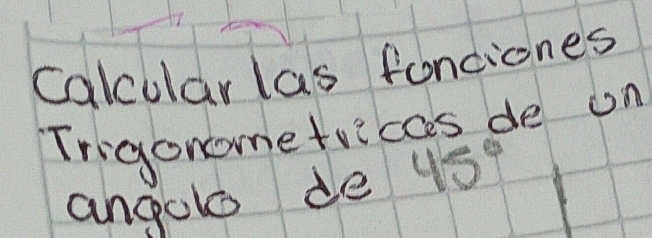 Calcular las funciones
Trigonometricas de un
angulo de 45°